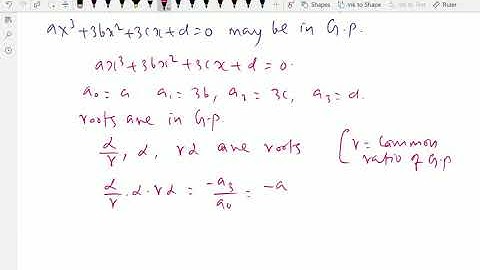 Shapes Ink to Shape Ink to Math Ruler
ax³+3bx²+3cx+d=0 may be in G.p.
ax³+3bx²+3cx+d=0.
a₀=a a₁=3b, a₂=3c, a₃=d.
roots are in G.p.
α/r, α, rα are roots [r=common
ratio of G.p
α/r . α . rα = -a₃/a₀ = -a